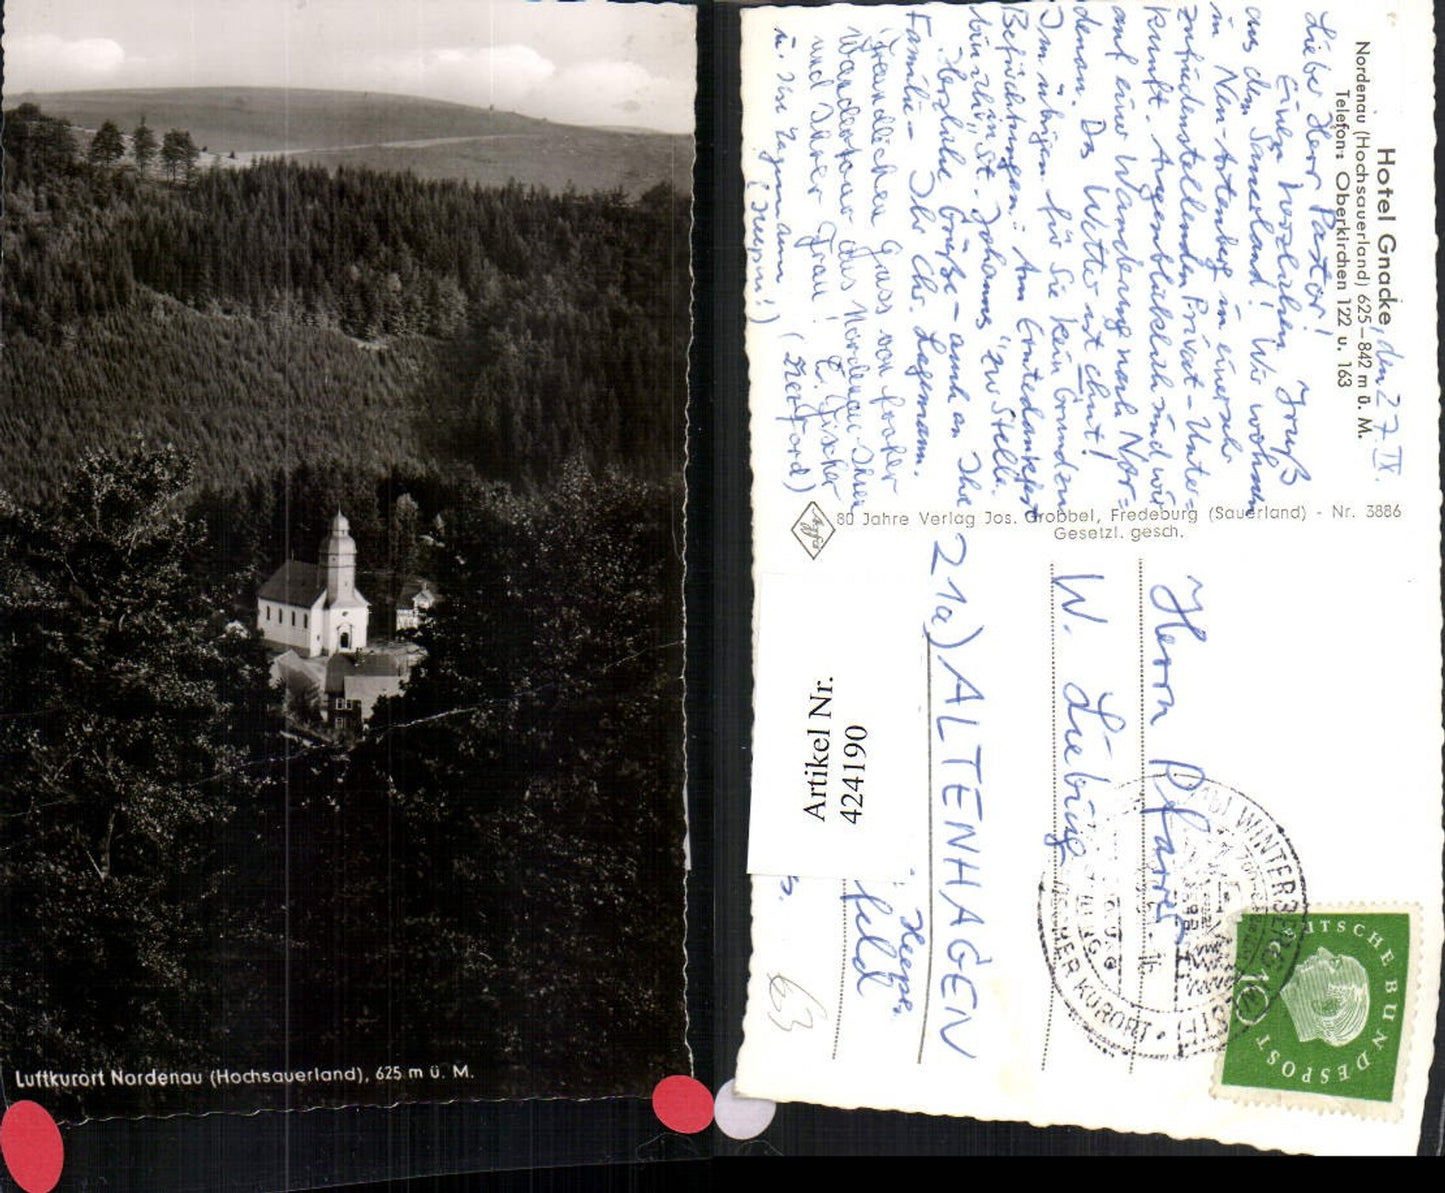 Luftkurort Nordenau (Hochsauerland), 625 m ü. M.
Hotel Gnacke, den 27. IX.
Nordenau (Hochsauerland) 625–842 m ü. M.
Telefon: Oberkirchen 122 u. 163
Lieber Herr Pastor!
Einen herzlichen Gruß
aus dem Sauerland! Wir wohnen
in Neu-Astenberg in einer sehr
zufriedenstellenden Privat-Unter=
kunft. Augenblicklich sind wir
auf einer Wanderung nach Nor=
denau. Das Wetter ist gut!
Im übrigen für Sie kein Grund zu
Befürchtungen: Am Erntedankfest
bin ich in "St. Johannis" zur Stelle.
Herzliche Grüße – auch an Ihre
Familie – Ihr Chr. Legemann.
Freundlichen Gruss von froher
Wandertour aus Nordenau Ihnen
und Ihrer Frau! E. Fischer
(Herford)
u. Ilse
(Heepen!)
80 Jahre Verlag Jos. Grobbel, Fredeburg (Sauerland) - Nr. 3886
Gesetzl. gesch.
Agfa
Herrn Pfarrer
W. Liebing
21a) ALTENHAGEN
Heepen
feld
s.
63
Artikel Nr.
424190
WINTERBERG
KURORT
DEUTSCHE BUNDESPOST
10